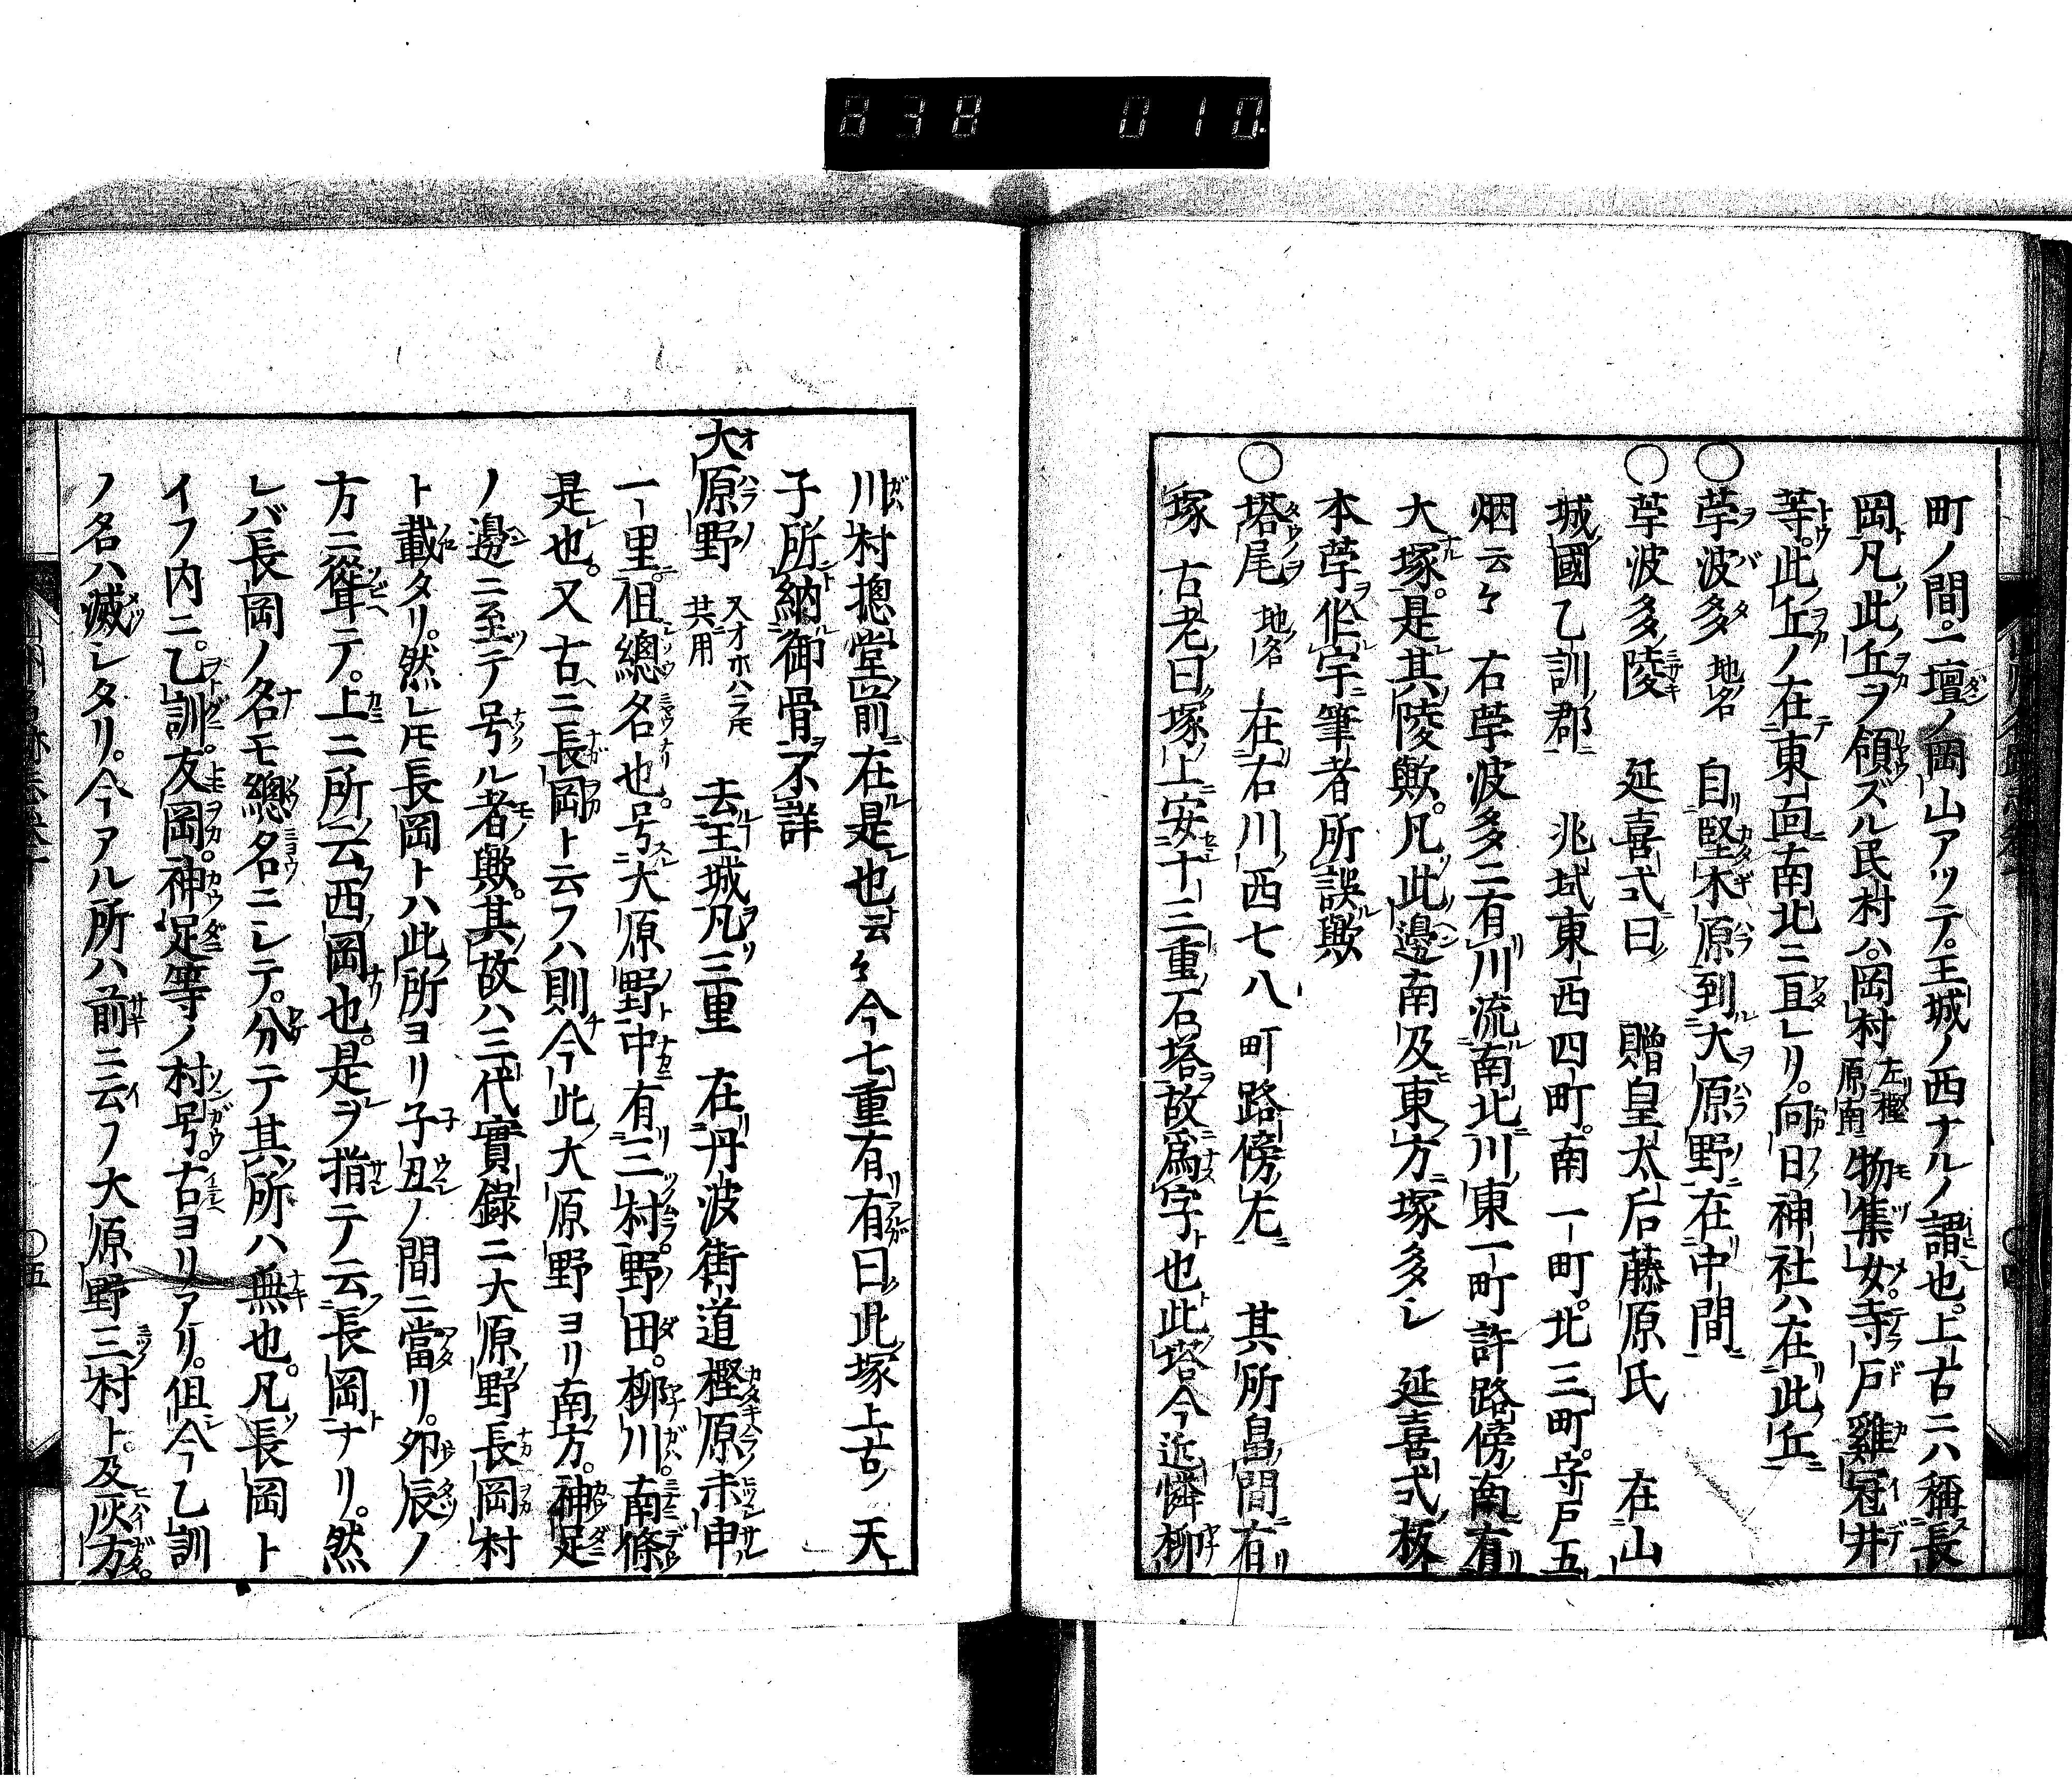 838 010
町ノ間。一壇ノ岡山アツテ。王城ノ西ナルノ謂也。上古ニハ稱長
岡凡此丘ヲ領ズル民村ハ。岡村 在樫原南 物集女。寺戸雞冠井
等。此丘ノ在東面南北ニ亘レリ。向日神社ハ在此丘
○荢波多 地名 自堅木原到大原野在中間
○荢波多陵 延喜式曰 贈皇太后藤原氏 在山
城國乙訓郡 兆域東西四町。南一町。北三町。守戸五
烟云々 右荢波多ニ有川流南北川東一町許路傍南有
大塚。是其陵歟。凡此邊南及東方塚多レ 延喜式板
本荢作宇筆者所誤歟
○塔尾 地名 在右川西七八町路傍左 其所畠間有
塚 古老曰塚上安十三重石塔故爲字也此塔今近憐柳
川村揔堂前在是也云々今七重有有曰此塚上古天
子所納御骨不詳
大原野 又オホハラモ共用 去王城凡三重 在丹波街道樫原未申
一里。但總名也。号大原野中有三村。野田。柳川。南條
是也。又古ニ長岡ト云フハ則今此大原野ヨリ南方。神足
ノ邊ニ至テ号ル者歟。其故ハ三代實錄ニ大原野長岡村
ト載タリ。然レモ長岡トハ此所ヨリ子丑ノ間ニ當リ。卯辰ノ
方ニ聳テ。上ニ所云西岡也。是ヲ指テ云長岡ナリ。然
レバ長岡ノ名モ總名ニレテ。分テ其所ハ無也。凡長岡ト
イフ内ニ。乙訓。友岡。神足等ノ村号。古ヨリアリ。但今乙訓
ノ名ハ滅レタリ。今アル所ハ前ニ云フ大原野三村ト。及灰方。
○五